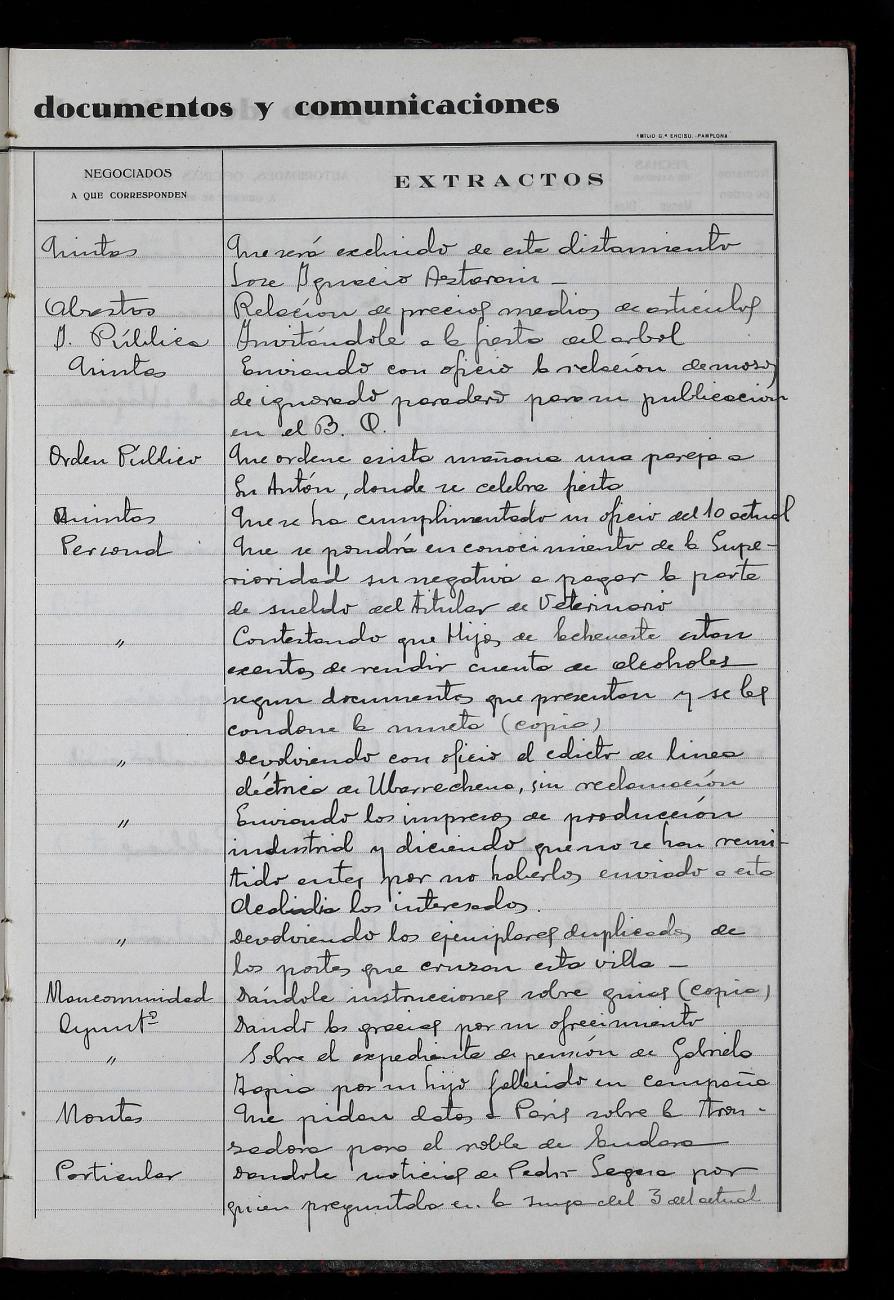 documentos y comunicaciones
EMILIO G.ª ENCISO.-PAMPLONA
NEGOCIADOS
A QUE CORRESPONDEN
EXTRACTOS
Quintas Que será excluido de este alistamiento
Jose Ignacio Astarain _
Abastos Relacion de precios medios de articulos
I. Pública Invitándole a la fiesta del arbol
Quintas Enviando con oficio la relación de mozos
de ignorado paradero para su publicación
en el B. O.
Orden Público Que ordene asista mañana una pareja a
Sn Antón, donde se celebra fiesta
Quintas Que se ha cumplimentado su oficio del 10 actual
Personal Que se pondrá en conocimiento de la Supe-
rioridad su negativa a pagar la parte
de sueldo del titular de Veterinario
" Contestando que Hijos de Echeveste estan
exentos de rendir cuenta de alcoholes
segun documentos que presentan y se les
condone la multa (copia)
" Devolviendo con oficio el edicto de linea
eléctrica de Ubarrechena, sin reclamación
" Enviando los impresos de producción
industrial y diciendo que no se han remi-
tido antes por no haberlos enviado a esta
Alcaldia los interesados.
" Devolviendo los ejemplares duplicados de
los postes que cruzan esta villa _
Mancomunidad Dándole instrucciones sobre guias (copia)
Ayuntº Dando las gracias por su ofrecimiento
" Sobre el expediente de pensión de Gabriela
Tapia por su hijo fallecido en campaña
Montes Que pidan datos a Paris sobre la tron-
zadora para el roble de Endara
Particular Dandole noticias de Pedro Segura por
quien preguntaba en la suya del 3 del actual